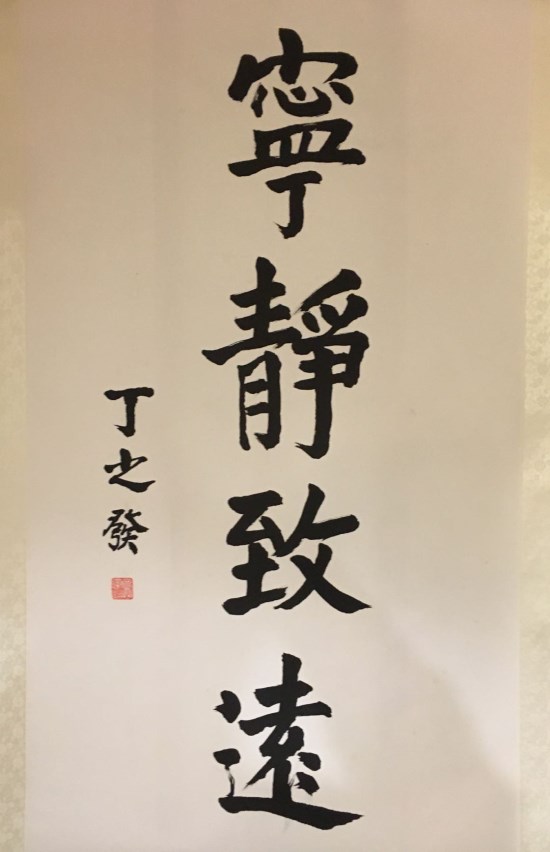 寧靜致遠
丁之發